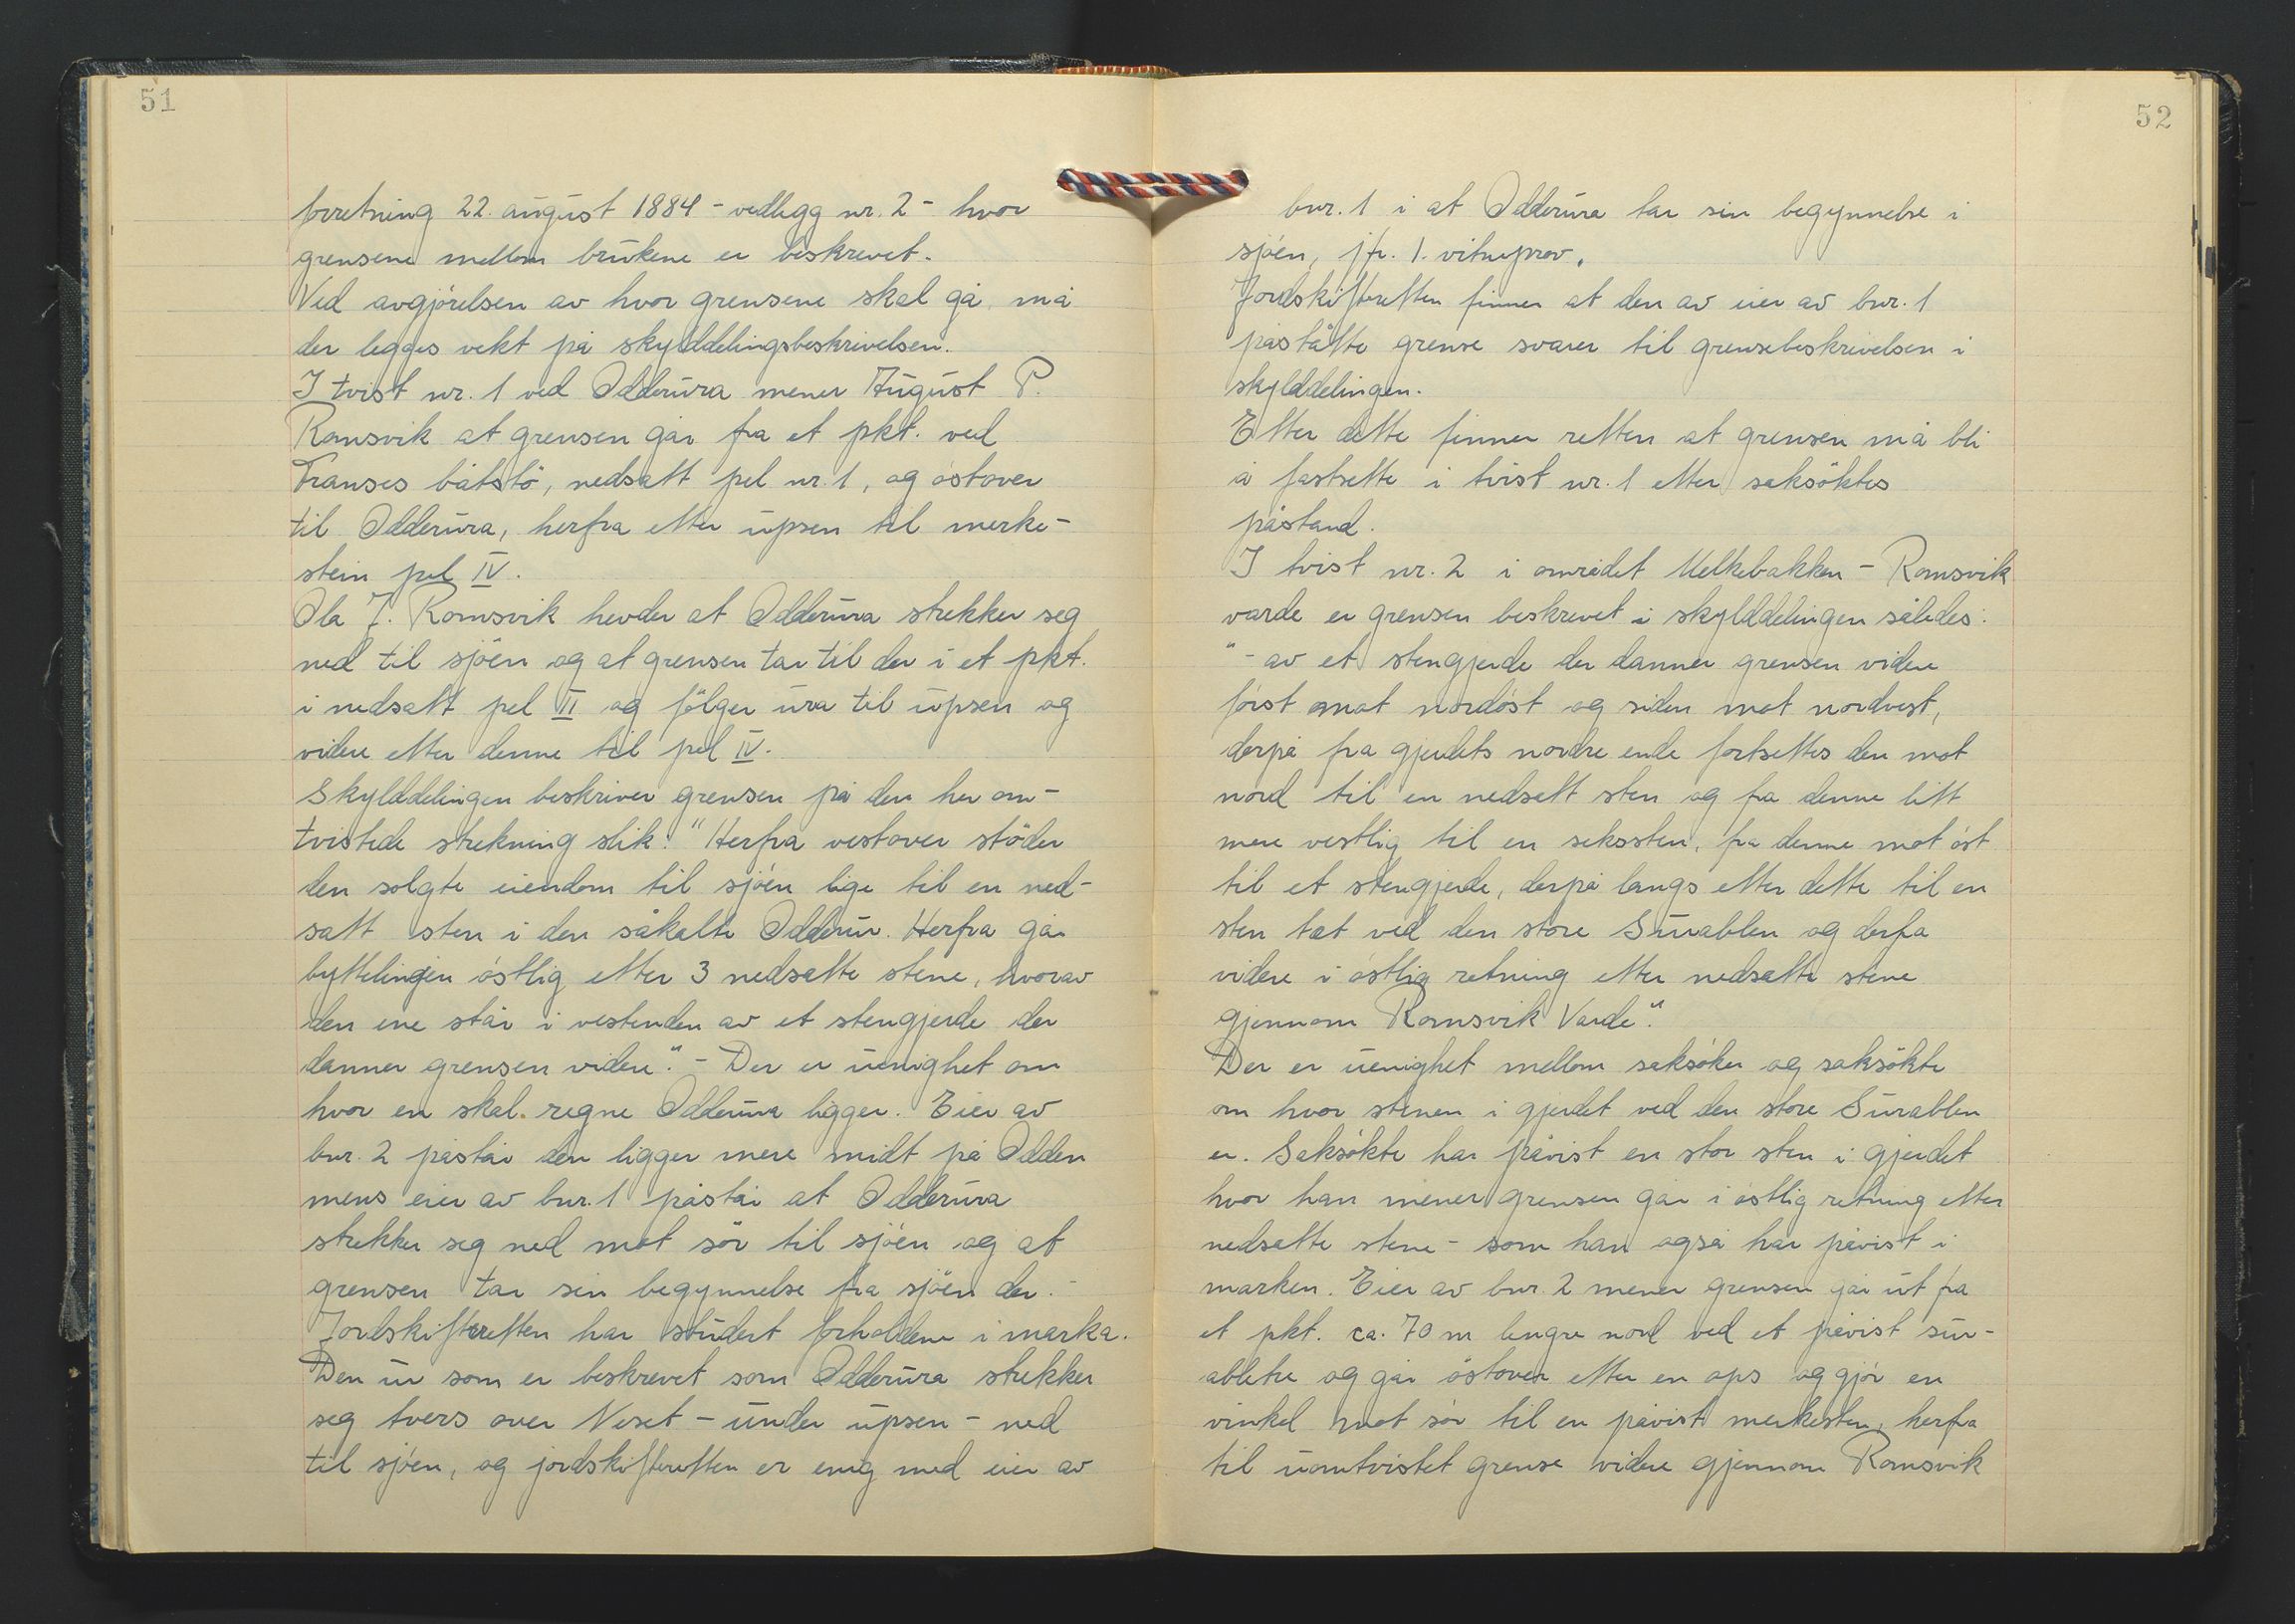 51
forretning 22. august 1884 - vedlegg nr. 2 - hvor
grensene mellom brukene er beskrevet.
Ved avgjörelsen av hvor grensene skal gå, må
der legges vekt på skylddelingsbeskrivelsen.
I tvist nr. 1 ved Odderura mener August P.
Romsvik at grensen går fra et pkt. ved
Franses båtstö, nedsatt pel nr. 1, og östover
til Odderura, herfra etter upsen til merke-
stein pel IV.
Ola J. Romsvik hevder at Odderura strekker seg
ned til sjöen og at grensen tar til der i et pkt.
i nedsatt pel II og fölger ura til upsen og
videre etter denne til pel IV.
Skylddelingen beskriver grensen på den her om-
tvistede strekning slik: "Herfra vestover stöder
den solgte eiendom til sjöen lige til en ned-
satt sten i den såkalte Odderur. Herfra går
byttelinjen östlig etter 3 nedsatte stene, hvorav
den ene står i vestenden av et stengjerde der
danner grensen videre". - Der er uenighet om
hvor en skal regne Odderura ligger. Eier av
bnr. 2 påstår den ligger mere midt på Odden
mens eier av bnr. 1 påstår at Odderura
strekker seg ned mot sör til sjöen og at
grensen tar sin begynnelse fra sjöen der. -
Jordskifteretten har studert forholdene i marka.
Den ur som er beskrevet som Odderura strekker
seg tvers over Neset - under upsen - ned
til sjöen, og jordskifteretten er enig med eier av
52
bnr. 1 i at Odderura tar sin begynnelse i
sjöen, jfr. 1. vitneprov.
Jordskifteretten finner at den av eier av bnr. 1
påståtte grense svarer til grensebeskrivelsen i
skylddelingen.
Etter dette finner retten at grensen må bli
å fastsette i tvist nr. 1 etter saksöktes
påstand.
I tvist nr. 2 i området Melkebakken - Romsvik
varde er grensen beskrevet i skylddelingen således:
"- av et stengjerde der danner grensen videre
först mot nordöst og siden mot nordvest,
derpå fra gjerdets nordre ende fortsettes den mot
nord til en nedsett sten og fra denne litt
mere vestlig til en seksten, fra denne mot öst
til et stengjerde, derpå langs etter dette til en
sten tæt ved den store Surablen og derfra
videre i östlig retning etter nedsatte stene
gjennom Romsvik Varde".
Der er uenighet mellom saksöker og saksökte
om hvor stenen i gjerdet ved den store Surablen
er. Saksökte har påvist en stor sten i gjerdet
hvor han mener grensen går i östlig retning etter
nedsatte stene - som han også har påvist i
marken. Eier av bnr. 2 mener grensen går ut fra
et pkt. ca. 70 m lengre nord ved et påvist sur-
abletre og går östover etter en ops og gjör en
vinkel mot sör til en påvist merkesten, herfra
til uomtvistet grense videre gjennom Romsvik